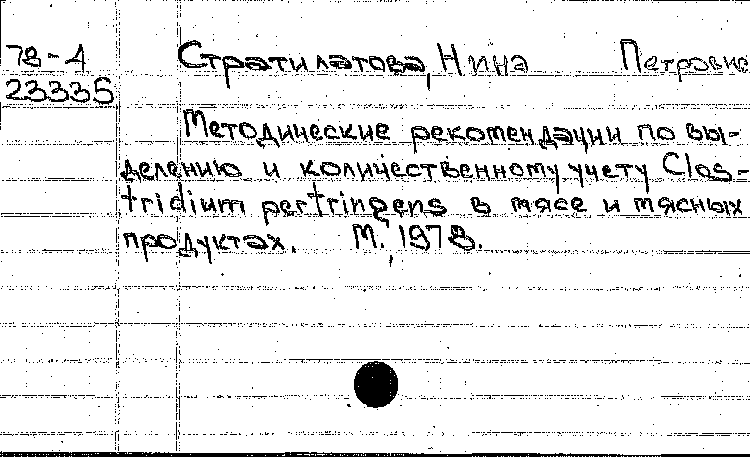 78-4 Стратилатова, Нина Петровна
23335
Методические рекомендации по вы-
делению и количественному учету Clos-
tridium perfringens в мясе и мясных
продуктах. М., 1978.